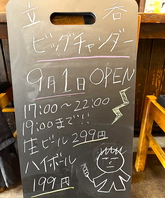 立呑
ビッグチャンダー
9月1日OPEN
17:00〜22:00
19:00まで!!
生ビール299円
ハイボール
199円